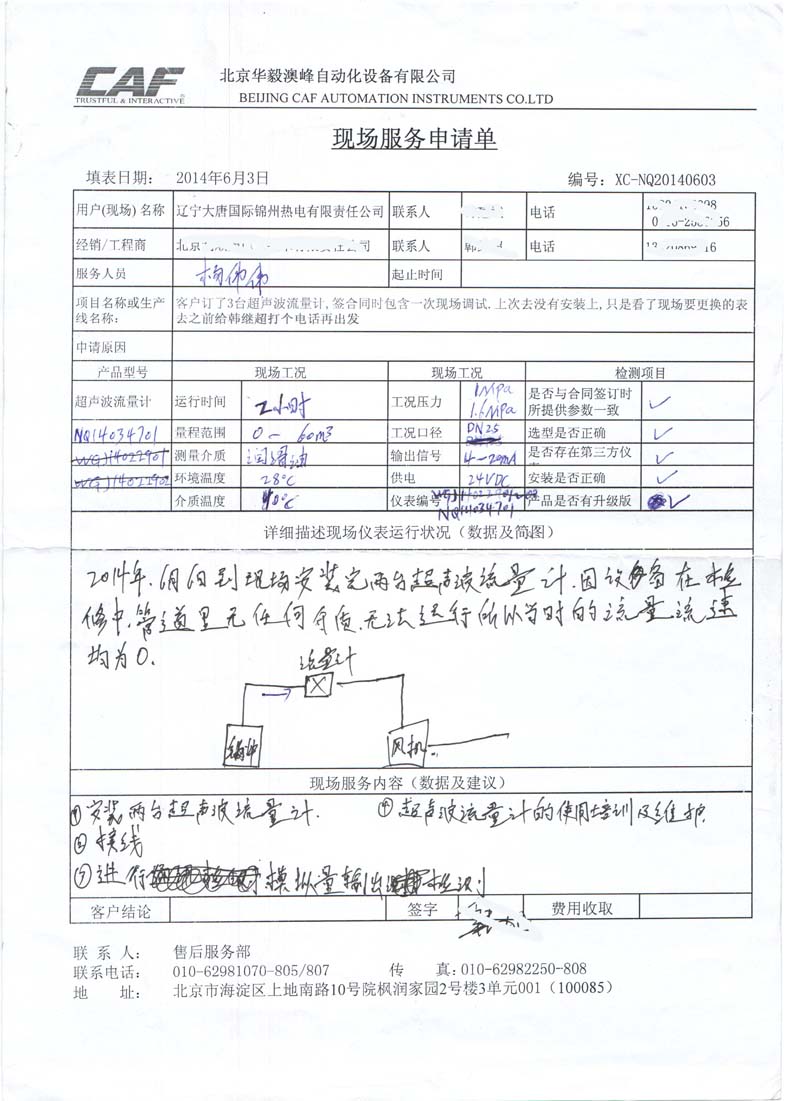 CAF
TRUSTFUL & INTERACTIVE
北京华毅澳峰自动化设备有限公司
BEIJING CAF AUTOMATION INSTRUMENTS CO.LTD
现场服务申请单
填表日期： 2014年6月3日 编号：XC-NQ20140603
用户(现场) 名称 辽宁大唐国际锦州热电有限责任公司 联系人 电话
经销/工程商 北京 司 联系人 韩 电话
服务人员 起止时间
项目名称或生产线名称： 客户订了3台超声波流量计,签合同时包含一次现场调试. 上次去没有安装上,只是看了现场要更换的表
去之前给韩继超打个电话再出发
申请原因
产品型号 现场工况 现场工况 检测项目
超声波流量计 运行时间 2小时 工况压力 1MPa 1.6MPa 是否与合同签订时所提供参数一致 ✓
NQ14034701 量程范围 0-60m3 工况口径 DN25 选型是否正确 ✓
WGJ14022901 测量介质 润滑油 输出信号 4-20mA 是否存在第三方仪 ✓
WGJ14022902 环境温度 28℃ 供电 24VDC 安装是否正确 ✓
介质温度 40℃ 仪表编号 NQ14034701 产品是否有升级版 ✓
详细描述现场仪表运行状况（数据及简图）
2014年.6月 日到现场安装完两台超声波流量计.因设备在检
修中.管道里无任何介质.无法运行所以当时的流量流速
均为0.
流量计
锅炉 风机
现场服务内容（数据及建议）
①安装两台超声波流量计. ④超声波流量计的使用培训及维护.
②接线
③进行 模拟量输出 检测
客户结论 签字 费用收取
联 系 人： 售后服务部
联系电话： 010-62981070-805/807 传 真：010-62982250-808
地 址： 北京市海淀区上地南路10号院枫润家园2号楼3单元001（100085）